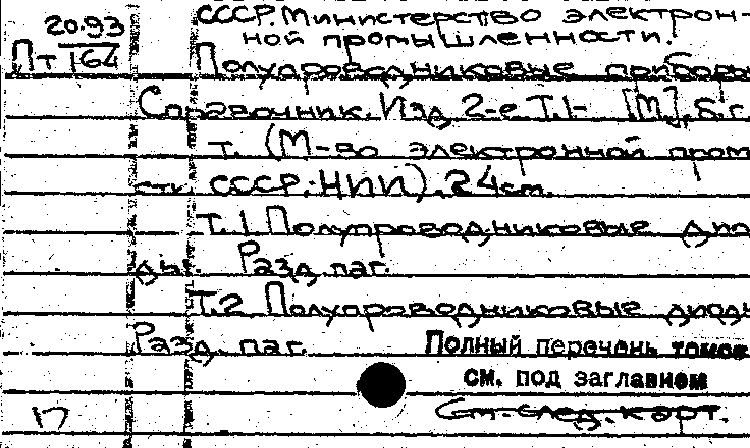 20.93
Пт 164
СССР. Министерство электрон-
ной промышленности.
Полупроводниковые приборы
Справочник. Изд. 2-е Т.1- [М], б.г.
т. (М-во электронной пром
сти СССР. НИИ). 24 см.
Т.1 Полупроводниковые дио
ды. Разд. паг.
Т.2 Полупроводниковые диоды
Разд. паг.
Полный перечень томов
см. под заглавием
См. след. карт.
17